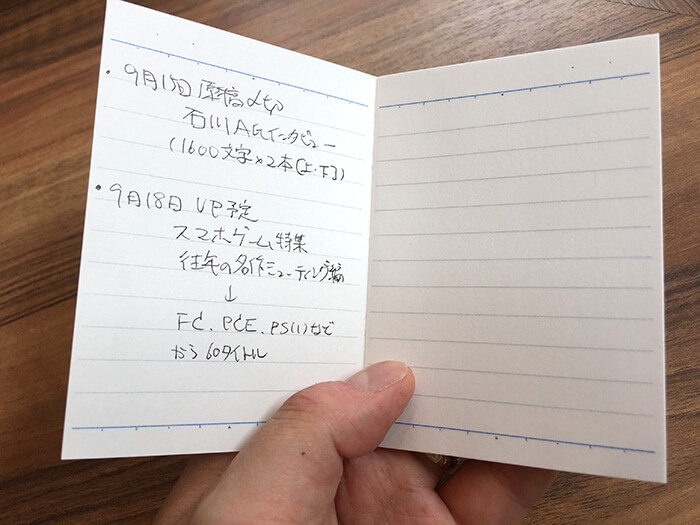 ・9月15日 原稿〆切
石川AGインタビュー
(1600文字×2本(上・下))
・9月18日 UP予定
スマホゲーム特集
往年の名作シューティング編
↓
FC、PCE、PS(1)など
から60タイトル